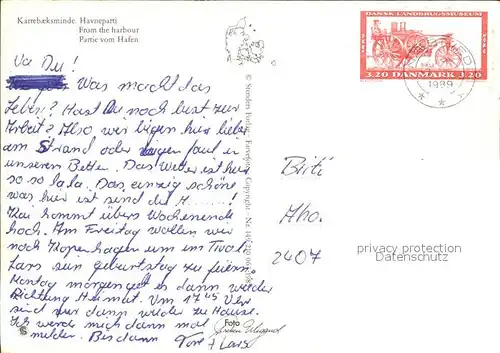 Karrebæksminde. Havneparti
From the harbour
Partie vom Hafen
DANSK LANDBRUGSMUSEUM
3.20 DANMARK 3.20
1989
Na Du!
Was macht das
Leben? Hast Du noch Lust zur
Arbeit? Also, wir liegen hier lieber
am Strand oder liegen faul in
unseren Betten. Das Wetter ist hier
so so la la. Das einzig schöne
was hier ist sind die H......!
Kai kommt übers Wochenende
hoch. Am Freitag wollen wir
noch Kopenhagen um im Tivoli
Lars sein Geburtstag zu feiern.
Montag morgen geht es dann wieder
Richtung Heimat. Um 17 45 Uhr
sind wir dann wieder zu Hause.
Ich werde mich dann mal
melden. Bis dann Tore + Lars
© Stenders Forlag. Eneret. Copyright - Nr.
Foto
Birti
Aho.
2407
privacy protection
Datenschutz